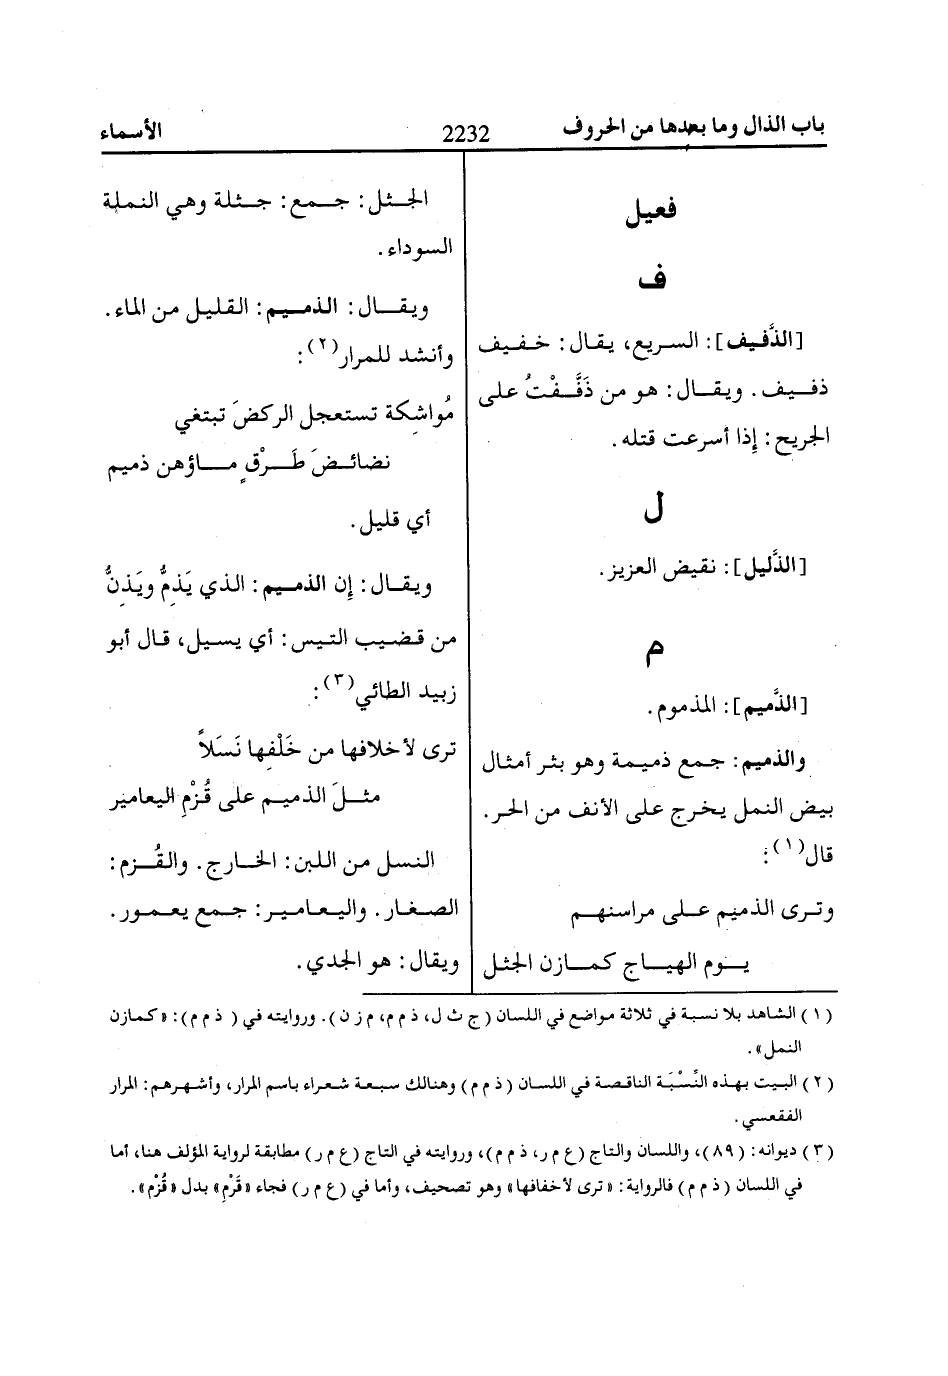 باب الذال وما بعدها من الحروف 2232 الأسماء
فعيل
ف
[الذَّفيف]: السريع، يقال: خفيف
ذفيف. ويقال: هو من ذَفَّفْتُ على
الجريح: إذا أسرعت قتله.
ل
[الذَّليل]: نقيض العزيز.
م
[الذَّميم]: المذموم.
والذميم: جمع ذميمة وهو بثر أمثال
بيض النمل يخرج على الأنف من الحر.
قال(١):
وترى الذميم على مراسنهم
يوم الهياج كمازن الجثل
الجثل: جمع: جثلة وهي النملة
السوداء.
ويقال: الذميم: القليل من الماء.
وأنشد للمرار(٢):
مُواشكة تستعجل الركضَ تبتغي
نضائضَ طَرْقٍ ماؤهن ذميم
أي قليل.
ويقال: إن الذميم: الذي يَذِمُّ ويَذِنُّ
من قضيب التيس: أي يسيل، قال أبو
زبيد الطائي(٣):
ترى لأخلافها من خَلْفِها نَسَلاً
مثلَ الذميم على قُزْمِ اليعامير
النسل من اللبن: الخارج. والقُزم:
الصغار. واليعامير: جمع يعمور.
ويقال: هو الجدي.
(١) الشاهد بلا نسبة في ثلاثة مواضع في اللسان (ج ث ل، ذ م م، م ز ن). وروايته في ( ذ م م): «كمازن
النمل».
(٢) البيت بهذه النِّسْبَة الناقصة في اللسان (ذ م م) وهنالك سبعة شعراء باسم المرار، وأشهرهم: المرار
الفقعسي.
(٣) ديوانه: (٨٩)، واللسان والتاج (ع م ر، ذ م م)، وروايته في التاج (ع م ر) مطابقة لرواية المؤلف هنا، أما
في اللسان (ذ م م) فالرواية: «ترى لأخفافها» وهو تصحيف، وأما في (ع م ر) فجاء «قَرْمِ» بدل «قُزْم».